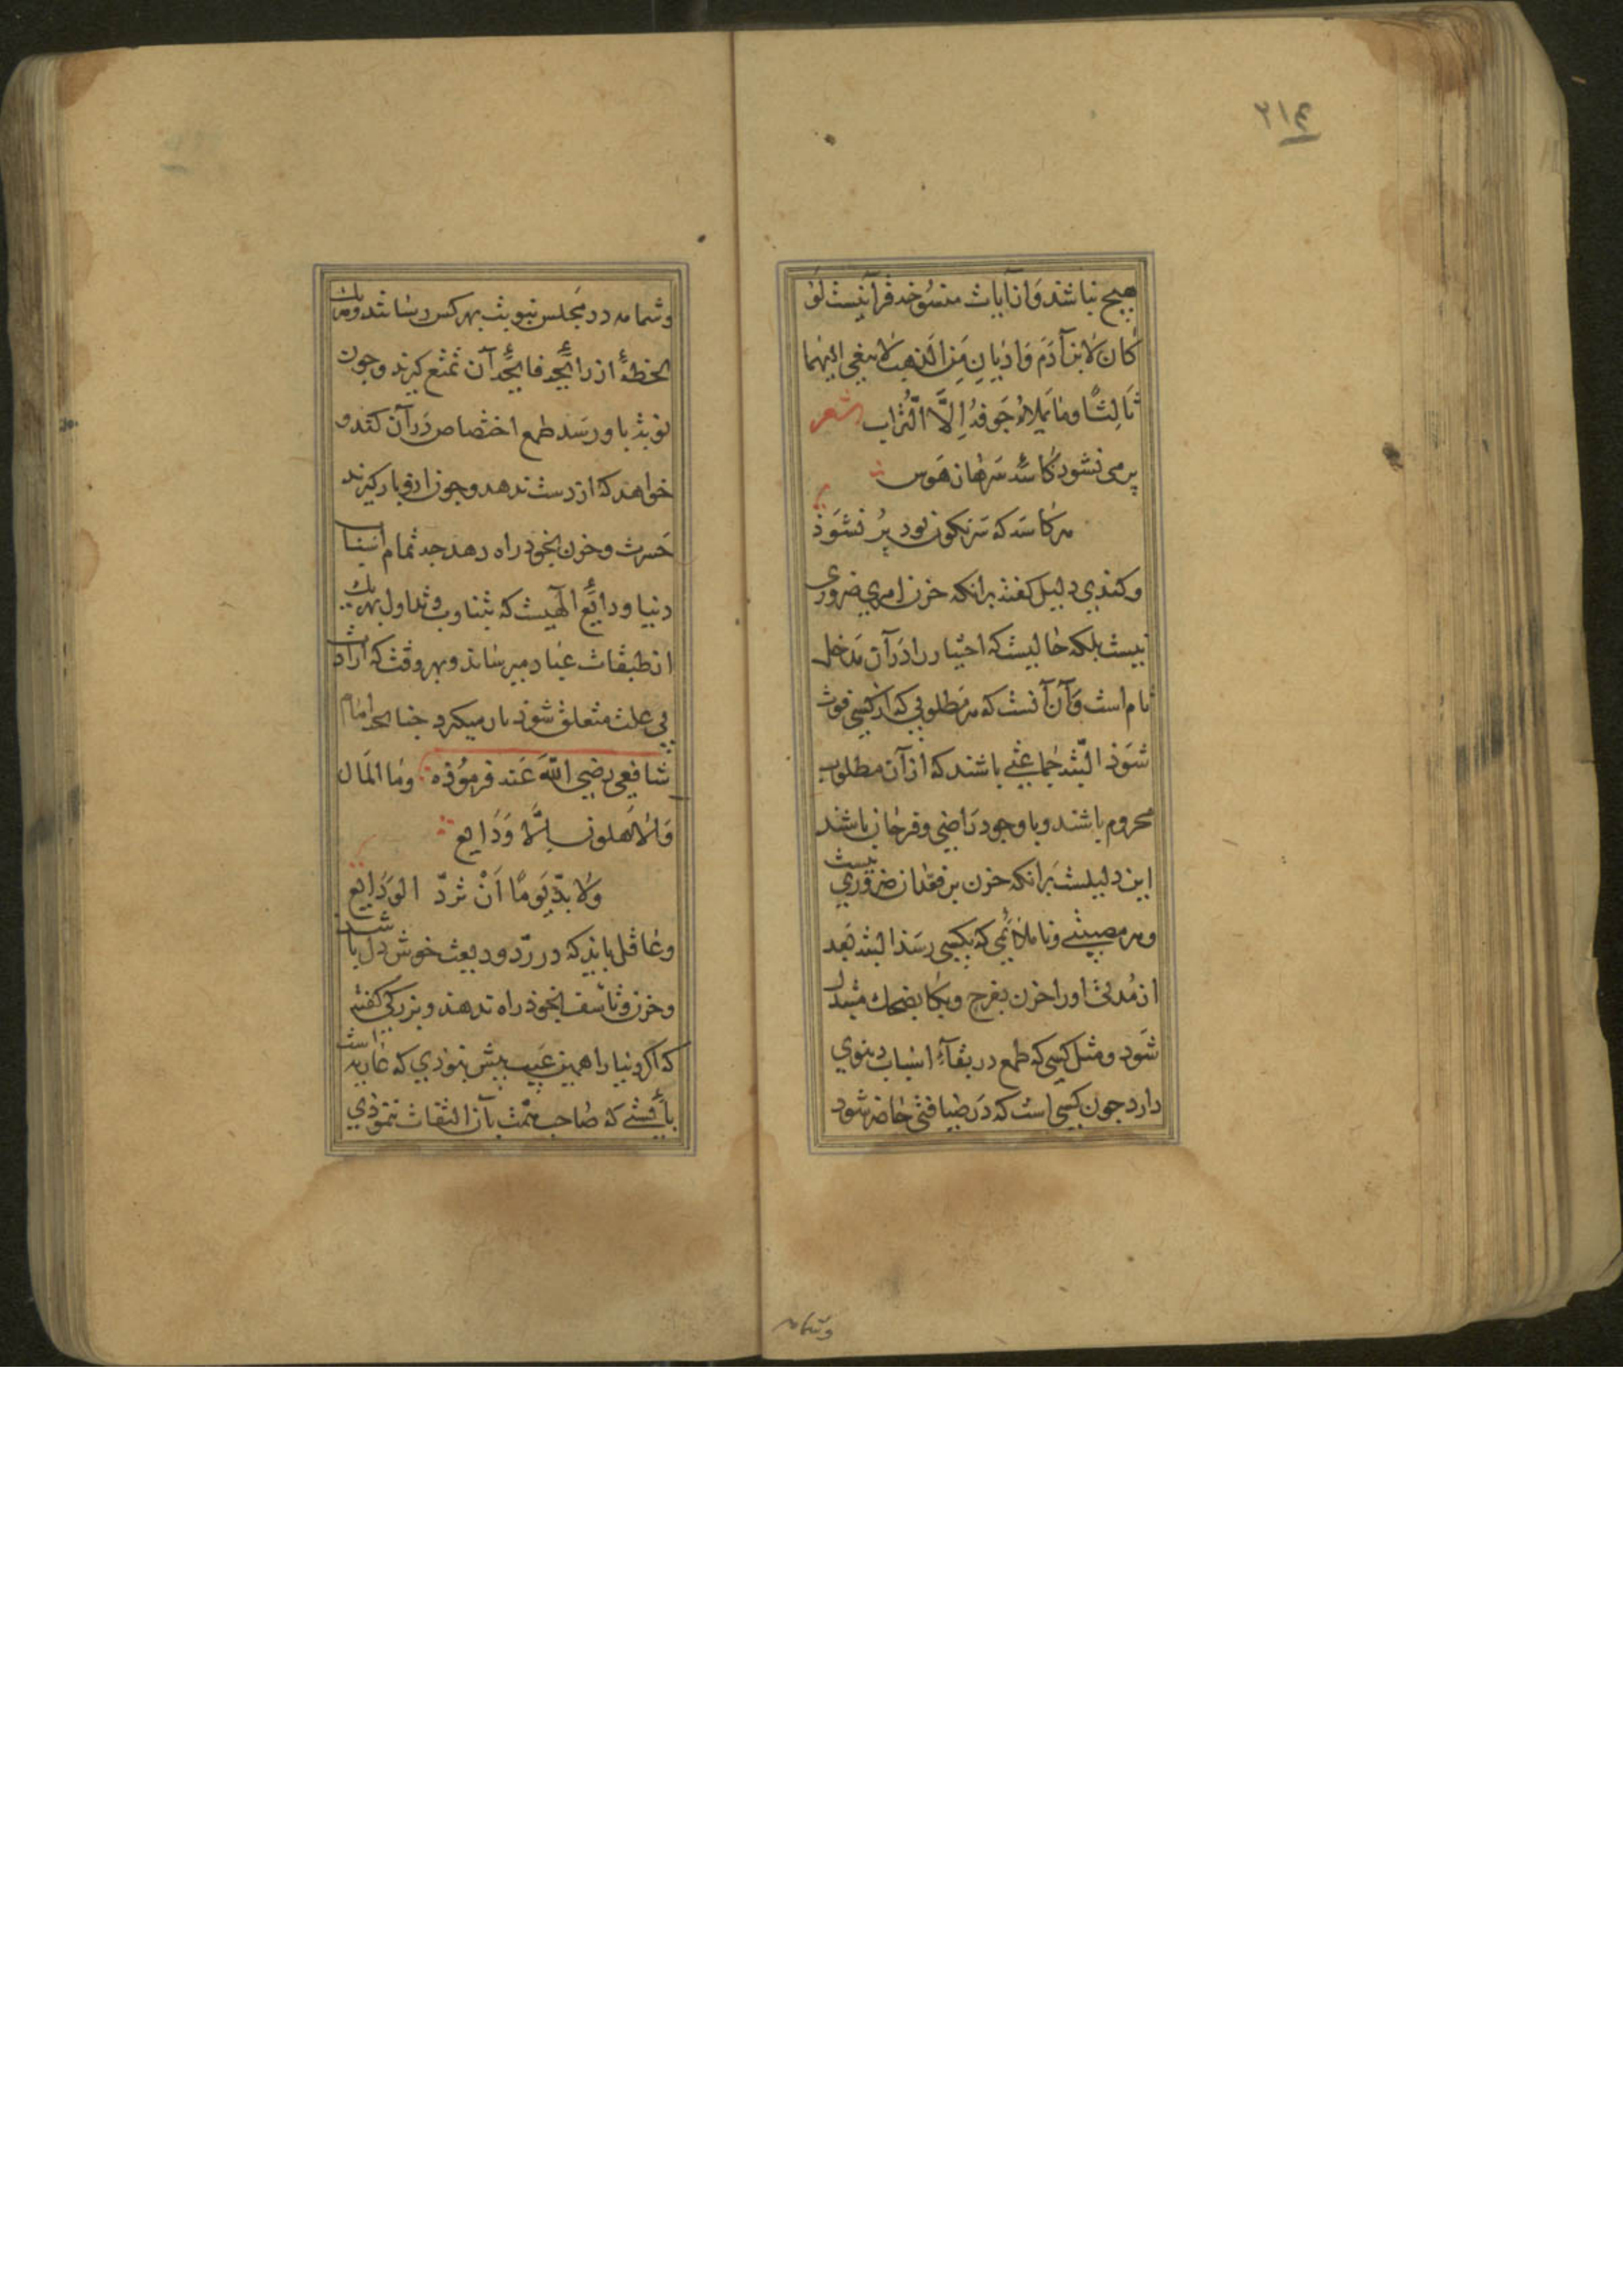 ٢١٤
هیچ نباشد وَاز آیات منسُوخه قرآنیست لَو
کٰانَ لاِبن آدَم وَادِیانِ مِنَ الذهبِ لابتغی الیهما
ثَالِثًا وَمٰا یَملاءُ جَوفهُ اِلَّا الّتُراب شعر
پر می نشود کاسۀ سرها ز هَوس
هر کٰاسَه که سَرنکون بود پُر نشوَذ
و کندی دلیل کفته برانکه حزن امری ضروری
نیست بلکه حٰالیست که اختیار را دَرآن مَدخل
تام است وَآن آنست که هر مَطلوبی که از کسی فوت
شوَذ البّته جماعتی باشند که از آن مطلوب
محروم باشند و با وجود رٰاضی و فرحٰان باشند
این دلیلست بَرانکه حزن بر فقدان ضروری نیست
و هر مصیبتی و ناملائمی که بکسی رسَذ البته بَعد
از مُدتی اورا حزن بفرح و بکا بضحك مبدل
شوَد و مثل کسی که طمع در بقآءِ اسبٰاب دنیوی
دارد جون کسی است که دَر ضیافتی حٰاضر شود
و شمامه
و شمامه در مَجلس نبوبت بهر کس رسٰانند و هر یك
لحظۀ از رایحۀ فایحۀ آن تمتّع کیرند و جون
نوبَة باو رسَد طمع اختصاص دَرآن کند و
خواهد که از دست ندهد و جون ازو باز کیرند
حَسرت و حزن بخود راه دهد جه تمام اشیٰا
دنیا ودایعُ الٓهیست که بتناوب و تداول بهریك
از طبقات عبٰاد میرسٰاند و بهر وقت که ارادت
بی علت متعلق شوَذ باز میکیرد جنانجه امٰام
شافعی رضی اللّٰه عَنه فرموُذه وَمٰا المَال
وَالاَهلونَ اِلَّا وَدَایع
وَلابدّ یَومًا اَنْ تردّ الوَدَایع
و عٰاقل بایَد که در رَدّ ودیعت خوش دل باشد
و حزن و تاسّف بخوذ راه ندهد و بزرکی کفته
که اکر دنیا را همین عَیب بیش نبوذی که عٰاریه است
بایستی که صٰاحب همّت بآن التفات ننموذی